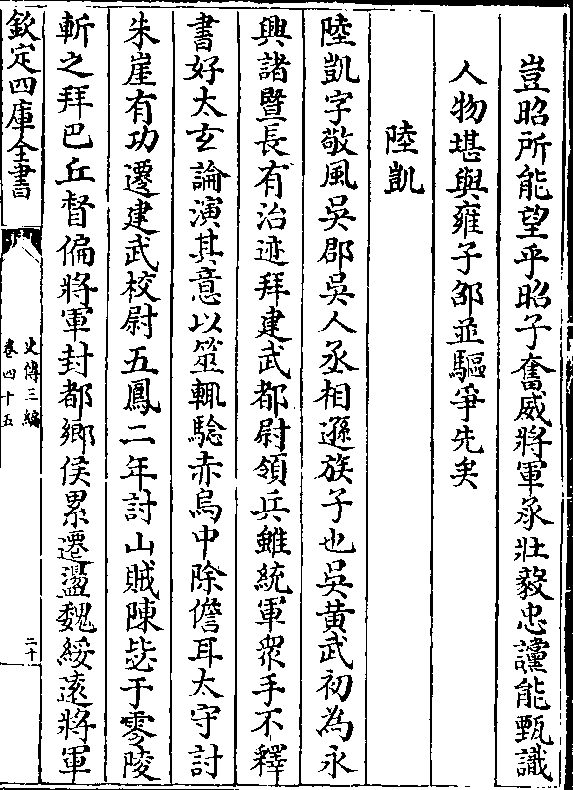 豈昭所能望乎昭子奮威將軍承壯毅忠讜能甄識
人物堪與雍子邵並驅爭先矣
陸凱
陸凱字敬風吳郡吳人丞相遜族子也吳黃武初為永
興諸暨長有治迹拜建武都尉領兵雖統軍衆手不釋
書好太玄論演其意以筮輒驗赤烏中除儋耳太守討
朱崖有功遷建武校尉五鳳二年討山賊陳毖于零陵
斬之拜巴丘督偏將軍封都鄉侯累遷盪魏綏逺將軍
欽定四庫全書
史傳三編
卷四十五
二十